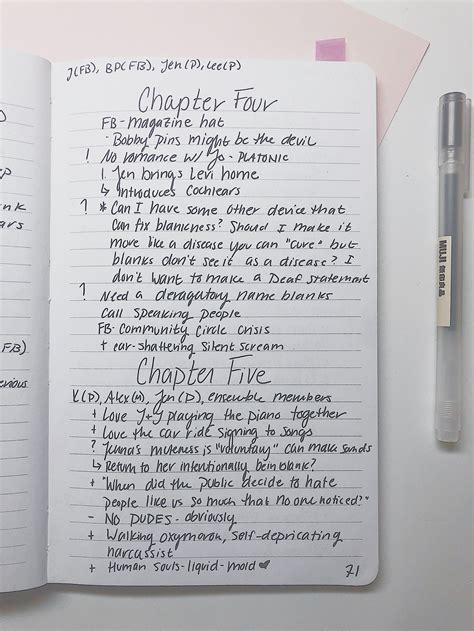 J(FB), BP(FB), Jen(P), Lee(P)
Chapter Four
FB-magazine hat
- Bobby pins might be the devil
! No romance w/ Jo - PLATONIC
1. Jen brings Levi home
↳ Introduces Cochlears
? * Can I have some other device that
can fix blankness? Should I make it
more like a disease you can "cure" but
blanks don't see it as a disease? I
don't want to make a Deaf statement
? Need a deragatory name blanks
call speaking people
FB-Community Circle crisis
+ ear-shattering silent scream
Chapter Five
K(D), Alex(M), Jen(D), ensemble members
+ Love J+J playing the piano together
+ Love the car ride signing to songs
? muteness is "voluntary" can make sounds
↳ Return to her intentionally being blank?
+ "When did the public decide to hate
people like us so much that no one noticed?"
- NO DUDES - obviously
+ Walking oxymoron, self-depricating
narcassist
+ Human souls-liquid-mold ♥
71
nk
ars
FB)
MUJI 無印良品